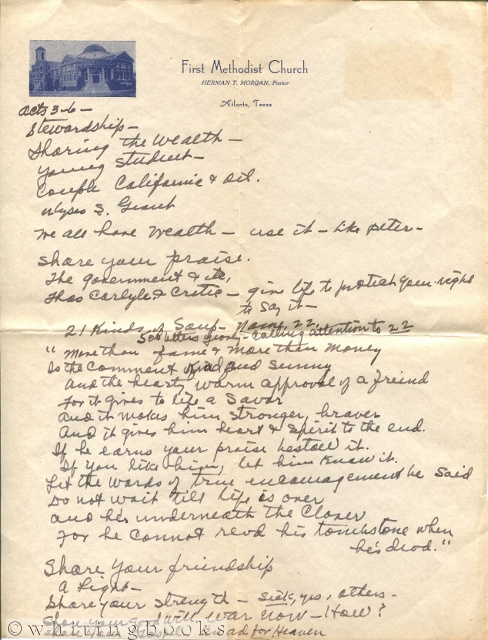 First Methodist Church
HERMAN T. MORGAN, Pastor
Atlanta, Texas
Acts 3-6 -
Stewardship -
Sharing the Wealth -
Young Student -
Couple California & oil.
Ulyses S. Grant
We all have wealth - use it - like Peter -
Share your praise.
The government & its,
Thos Carlyle & Critic - give life to protect your right
to say it -
21 Kinds of Soup - Name 22
Got letters calling attention to 22
"More than fame & more than money
Is the comment kind and sunny
And the hearty warm approval of a friend
For it gives to life a savor
And it makes him stronger, braver
And it gives him heart & spirit to the end.
If he earns your praise bestow it.
If you like him, let him know it.
Let the words of true encouragement be said
Do not wait till life is over
and he's underneath the clover
For he cannot read his tombstone when
he's dead."
Share your friendship
A Light -
Share your strength - sick, yes, others -
Share your war now - How?
ad for Heaven
whitingbooks